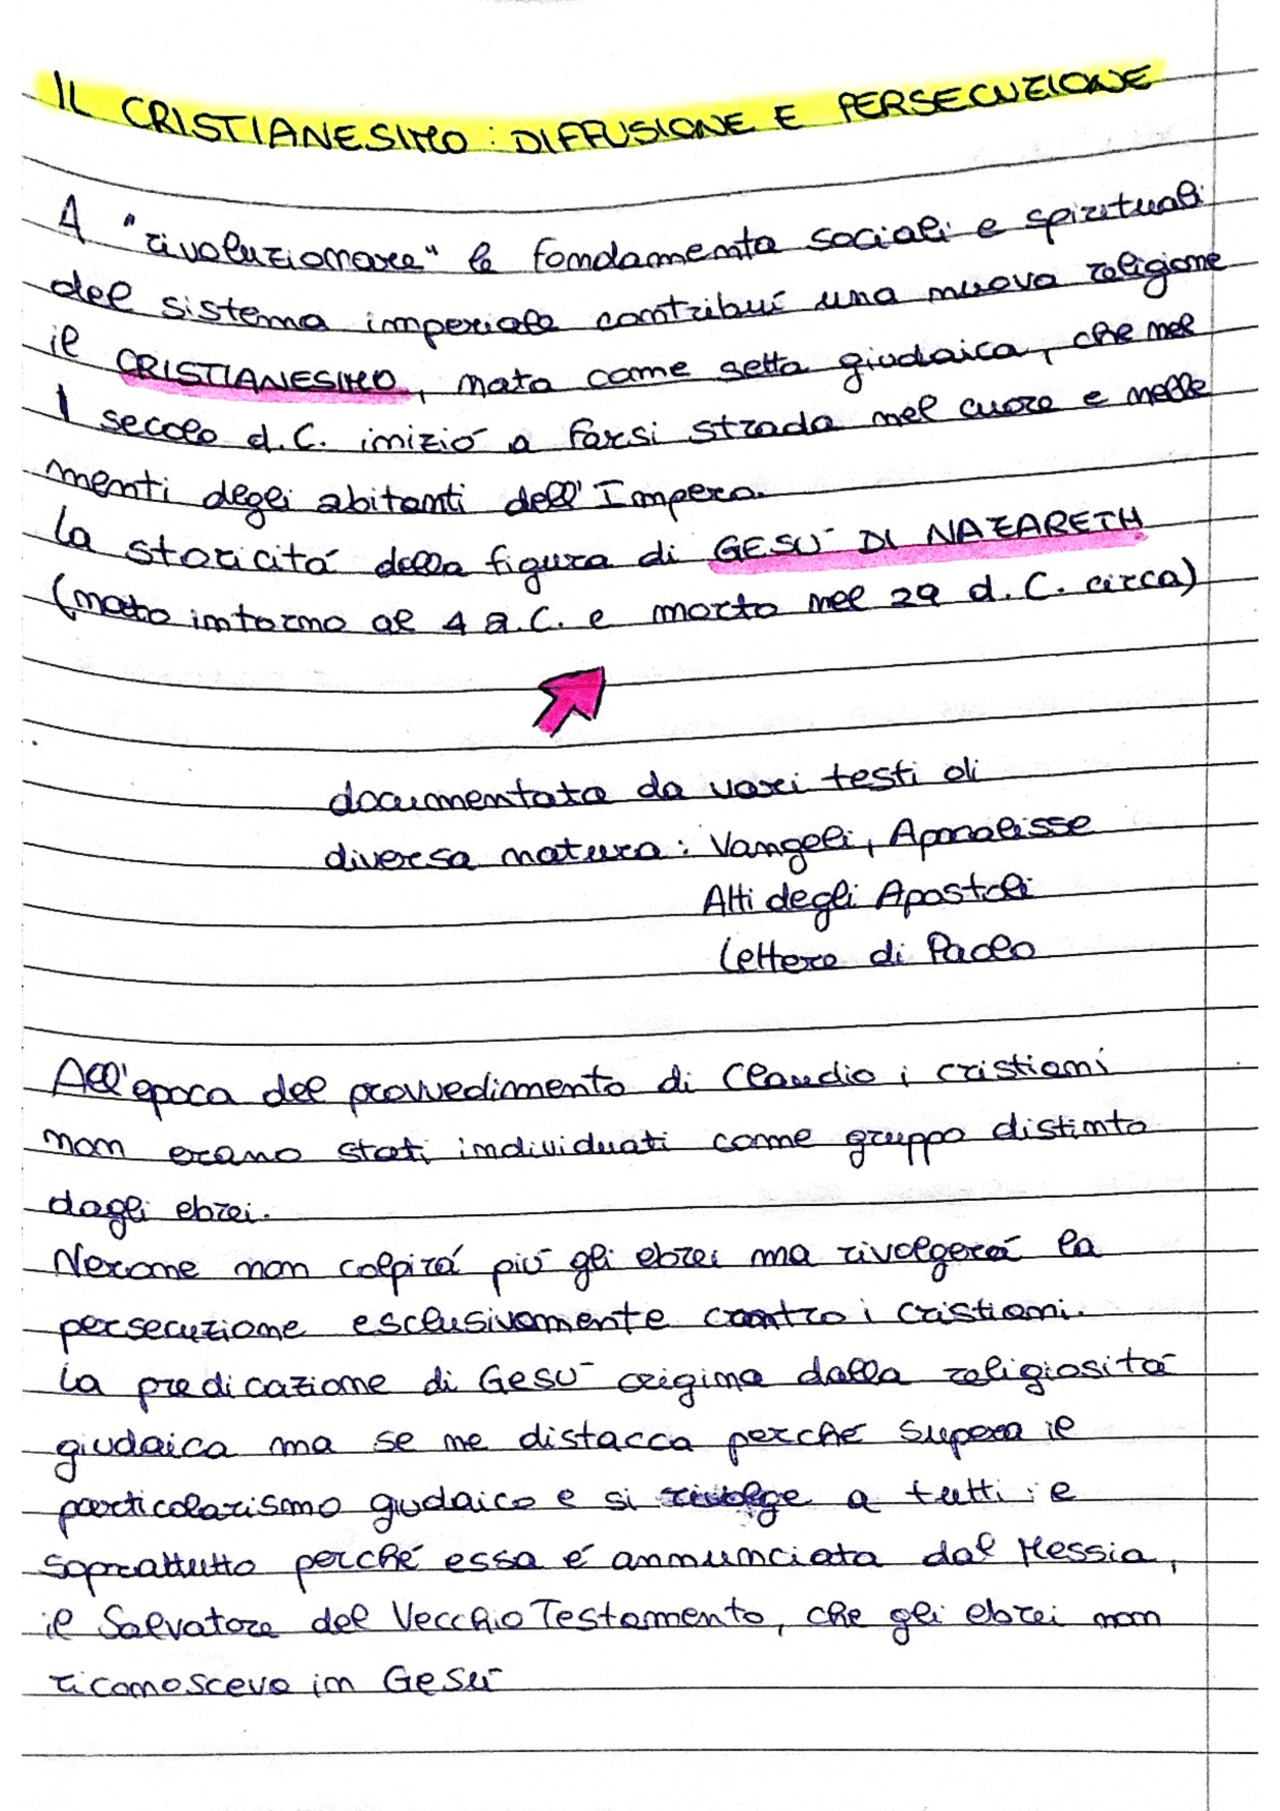 IL CRISTIANESIMO: DIFFUSIONE E PERSECUZIONE
A "rivoluzionare" le fondamenta sociali e spirituali
del sistema imperiale contribuí una nuova religione
il CRISTIANESIMO, nata come setta giudaica, che nel
I secolo d.C. iniziò a farsi strada nel cuore e nelle
menti degli abitanti dell'Impero.
La storicitá della figura di GESÙ DI NAZARETH
(nato intorno al 4 a.C. e morto nel 29 d.C. circa)
documentata da vari testi di
diversa natura: Vangeli, Apocalisse
Atti degli Apostoli
Lettere di Paolo
All'epoca del provvedimento di Claudio i cristiani
non erano stati individuati come gruppo distinto
dagli ebrei.
Nerone non colpirá più gli ebrei ma rivolgerá la
persecuzione esclusivamente contro i cristiani.
La predicazione di Gesù origina dalla religiositá
giudaica ma se ne distacca perché supera il
particolarismo gudaico e si rivolge a tutti; e
soprattutto perché essa é annunciata dal Messia,
il Salvatore del Vecchio Testamento, che gli ebrei non
riconosceva in Gesú